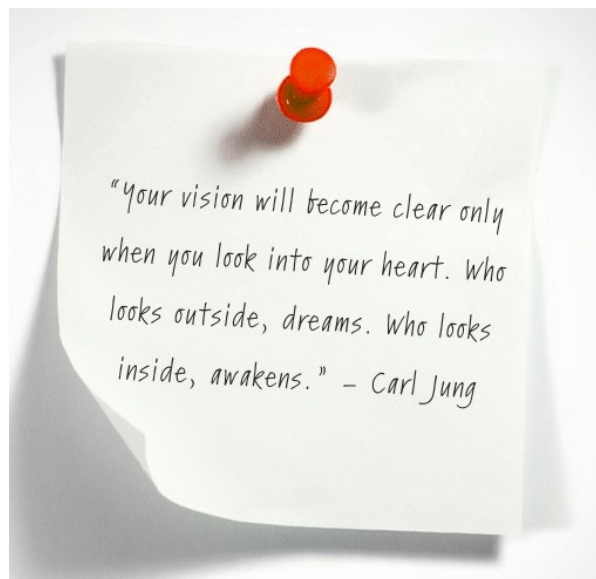 “Your vision will become clear only
when you look into your heart. Who
looks outside, dreams. Who looks
inside, awakens.” – Carl Jung